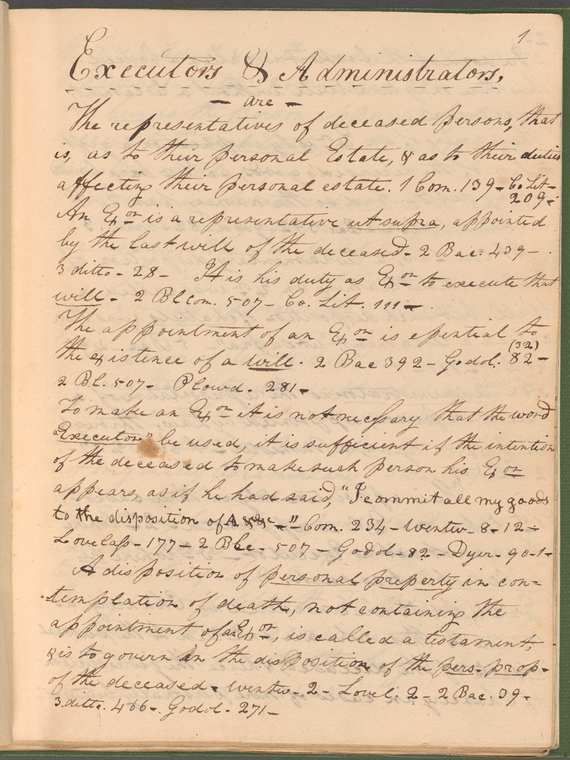 1
Executors & Administrators,
- are -
The representatives of deceased persons, that
is, as to their personal Estate, & as to their duties
affecting their personal estate. 1 Com. 139 - Co Lit -
209 -
An Exor is a representative ut supra, appointed
by the last will of the deceased - 2 Bac. 439 -
3 ditto - 28 - It is his duty as Exor to execute that
will - 2 Bl Com. 507 - Co. Lit. 111 -
The appointment of an Exor is essential to
(32)
the existence of a will. 2 Bac 392 - Godol. 82 -
2 Bl. 507 - Plowd - 281 -
To make an Exor it is not necessary that the word
"Executor" be used, it is sufficient if the intention
of the deceased to make such person his Exor
appears, as if he had said, "I commit all my goods
to the disposition of A &c - " Com. 234 - Wentw - 8 - 12 -
Lovelass - 177 - 2 Bl - 507 - Godol - 82 - Dyer - 90 - 1 -
A disposition of personal property in con-
templation of death, not containing the
appointment of an Exor, is called a testament,
& is to govern in the disposition of the pers. prop -
of the deceased - Wentw - 2 - Lovel. 2 - 2 Bac. 39 -
3 ditto. 466 - Godol - 271 -